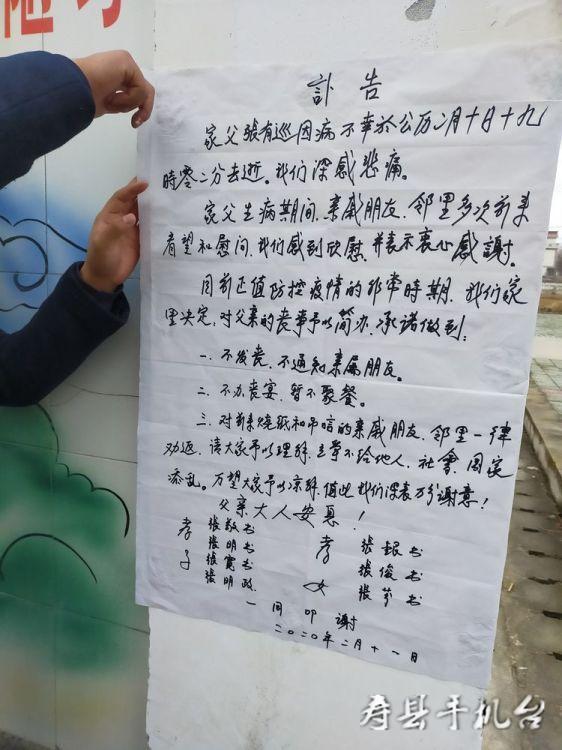 訃告
家父張有巡因病不幸於公历二月十日十九
時零二分去逝。我们深感悲痛。
家父生病期间，亲戚朋友、邻里多次前来
看望和慰问，我们感到欣慰，并表示衷心感謝。
目前正值防控疫情的非常時期，我们家
里决定，对父亲的丧事予以简办，承诺做到：
一、不发丧，不通知亲属朋友。
二、不办丧宴，暂不聚餐。
三、对前来烧纸和吊唁的亲戚朋友、邻里一律
劝返，请大家予以理解，尽量不给他人、社會、国家
添乱。万望大家予以凉解，值此我们深表万分谢意！
父亲大人安息！
孝子 張敏书 孝女 張銀书
張明书 張俊书
張寬书 張芬书
張明政
一同叩謝
二〇二〇年二月十一日
寿县手机台